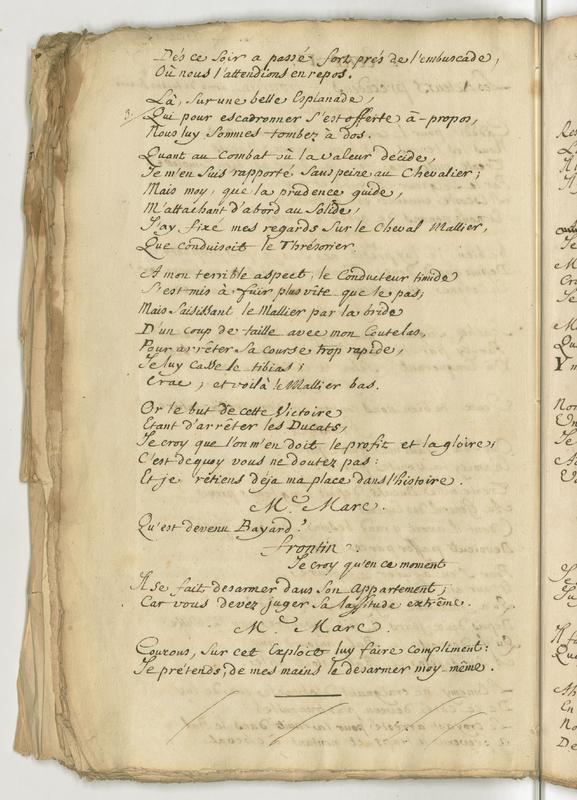 Dés ce soir a passé fort prés de l'embuscade,
Où nous l'attendions en repos.
Là, sur une belle Esplanade,
3/ Qui pour escadronner s'est offerte à-propos,
Nous luy sommes tombez à dos.
Quant au Combat où la valeur décide,
Je m'en suis rapporté sans peine au Chevalier;
Mais moy, que la prudence guide,
M'attachant d'abord au Solide,
J'ay fixé mes regards sur le Cheval Mallier,
Que conduisoit le Thrésorier.
A mon terrible aspect, le Conducteur timide
S'est mis à fuir plus vîte que le pas;
Mais saisissant le Mallier par la bride
D'un coup de taille avec mon Coutelas,
Pour arrêter sa course trop rapide,
Je luy casse le tibias;
Crac, et voilà le Mallier bas.
Or le but de cette Victoire
Etant d'arrêter les Ducats,
Je croy que l'on m'en doit le profit et la gloire;
C'est dequoy vous ne doutez pas:
Et je rétiens déja ma place dans l'histoire.
Me. Marc.
Qu'est devenu Bayard?
frontin.
Je croy qu'en ce moment
Il se fait desarmer dans son appartement;
Car vous devez juger sa lassitude extrême.
Me Marc.
Courons, sur cet Exploit luy faire compliment:
Je prétends, de mes mains le desarmer moy-même.